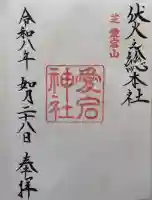 伏火之総本社
芝 愛宕山
愛宕神社
令和八年 如月二十八日 奉拝